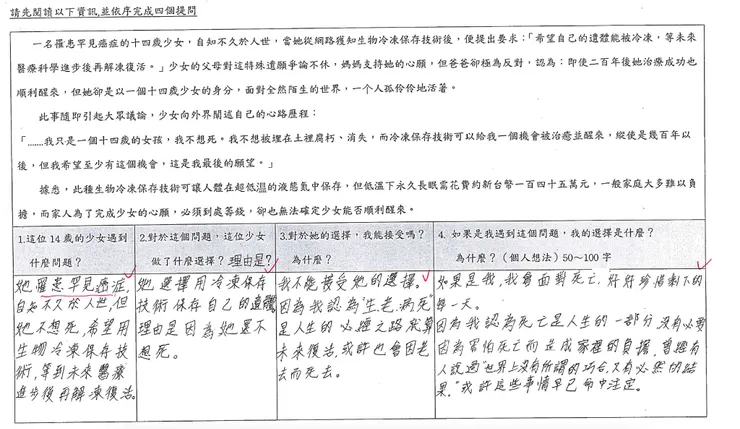 請先閱讀以下資訊,並依序完成四個提問
一名罹患罕見癌症的十四歲少女,自知不久於人世,當她從網路獲知生物冷凍保存技術後,便提出要求:「希望自己的遺體能被冷凍,等未來
醫療科學進步後再解凍復活。」少女的父母對這特殊遺願爭論不休,媽媽支持她的心願,但爸爸卻極為反對,認為:即使二百年後她治療成功也
順利醒來,但她卻是以一個十四歲少女的身分,面對全然陌生的世界,一個人孤伶伶地活著。
此事隨即引起大眾議論,少女向外界闡述自己的心路歷程:
「……我只是一個十四歲的女孩,我不想死。我不想被埋在土裡腐朽、消失,而冷凍保存技術可以給我一個機會被治癒並醒來,縱使是幾百年以
後,但我希望至少有這個機會,這是我最後的願望。」
據悉,此種生物冷凍保存技術可讓人體在超低溫的液態氮中保存,但低溫下永久長眠需花費約新台幣一百四十五萬元,一般家庭大多難以負
擔,而家人為了完成少女的心願,必須到處籌錢,卻也無法確定少女能否順利醒來。
1.這位 14 歲的少女遇到
什麼問題?
她罹患罕見癌症,
自知不久於人世,但
她不想死,希望用
生物冷凍保存技
術,等到未來醫療
進步後再解凍復活。
2.對於這個問題,這位少女
做了什麼選擇?理由是?
她選擇用冷凍保存
技術保存自己的遺體,
理由是因為她還不
想死。
3.對於她的選擇,我能接受嗎?
為什麼?
我不能接受她的選擇。
因為我認為“生老病死”
是人生的必經之路,就算
未來復活,或許也會因老
去而死去。
4. 如果是我遇到這個問題,我的選擇是什麼?
為什麼?(個人想法)50～100 字
如果是我,我會面對死亡,好好珍惜剩下的
每一天。
因為我認為死亡是人生的一部分,沒有必要
因為害怕死亡而造成家裡的負擔,曾經有
人說過“世界上沒有所謂的巧合,只有必然的結
果。”或許這些事情早已命中注定。